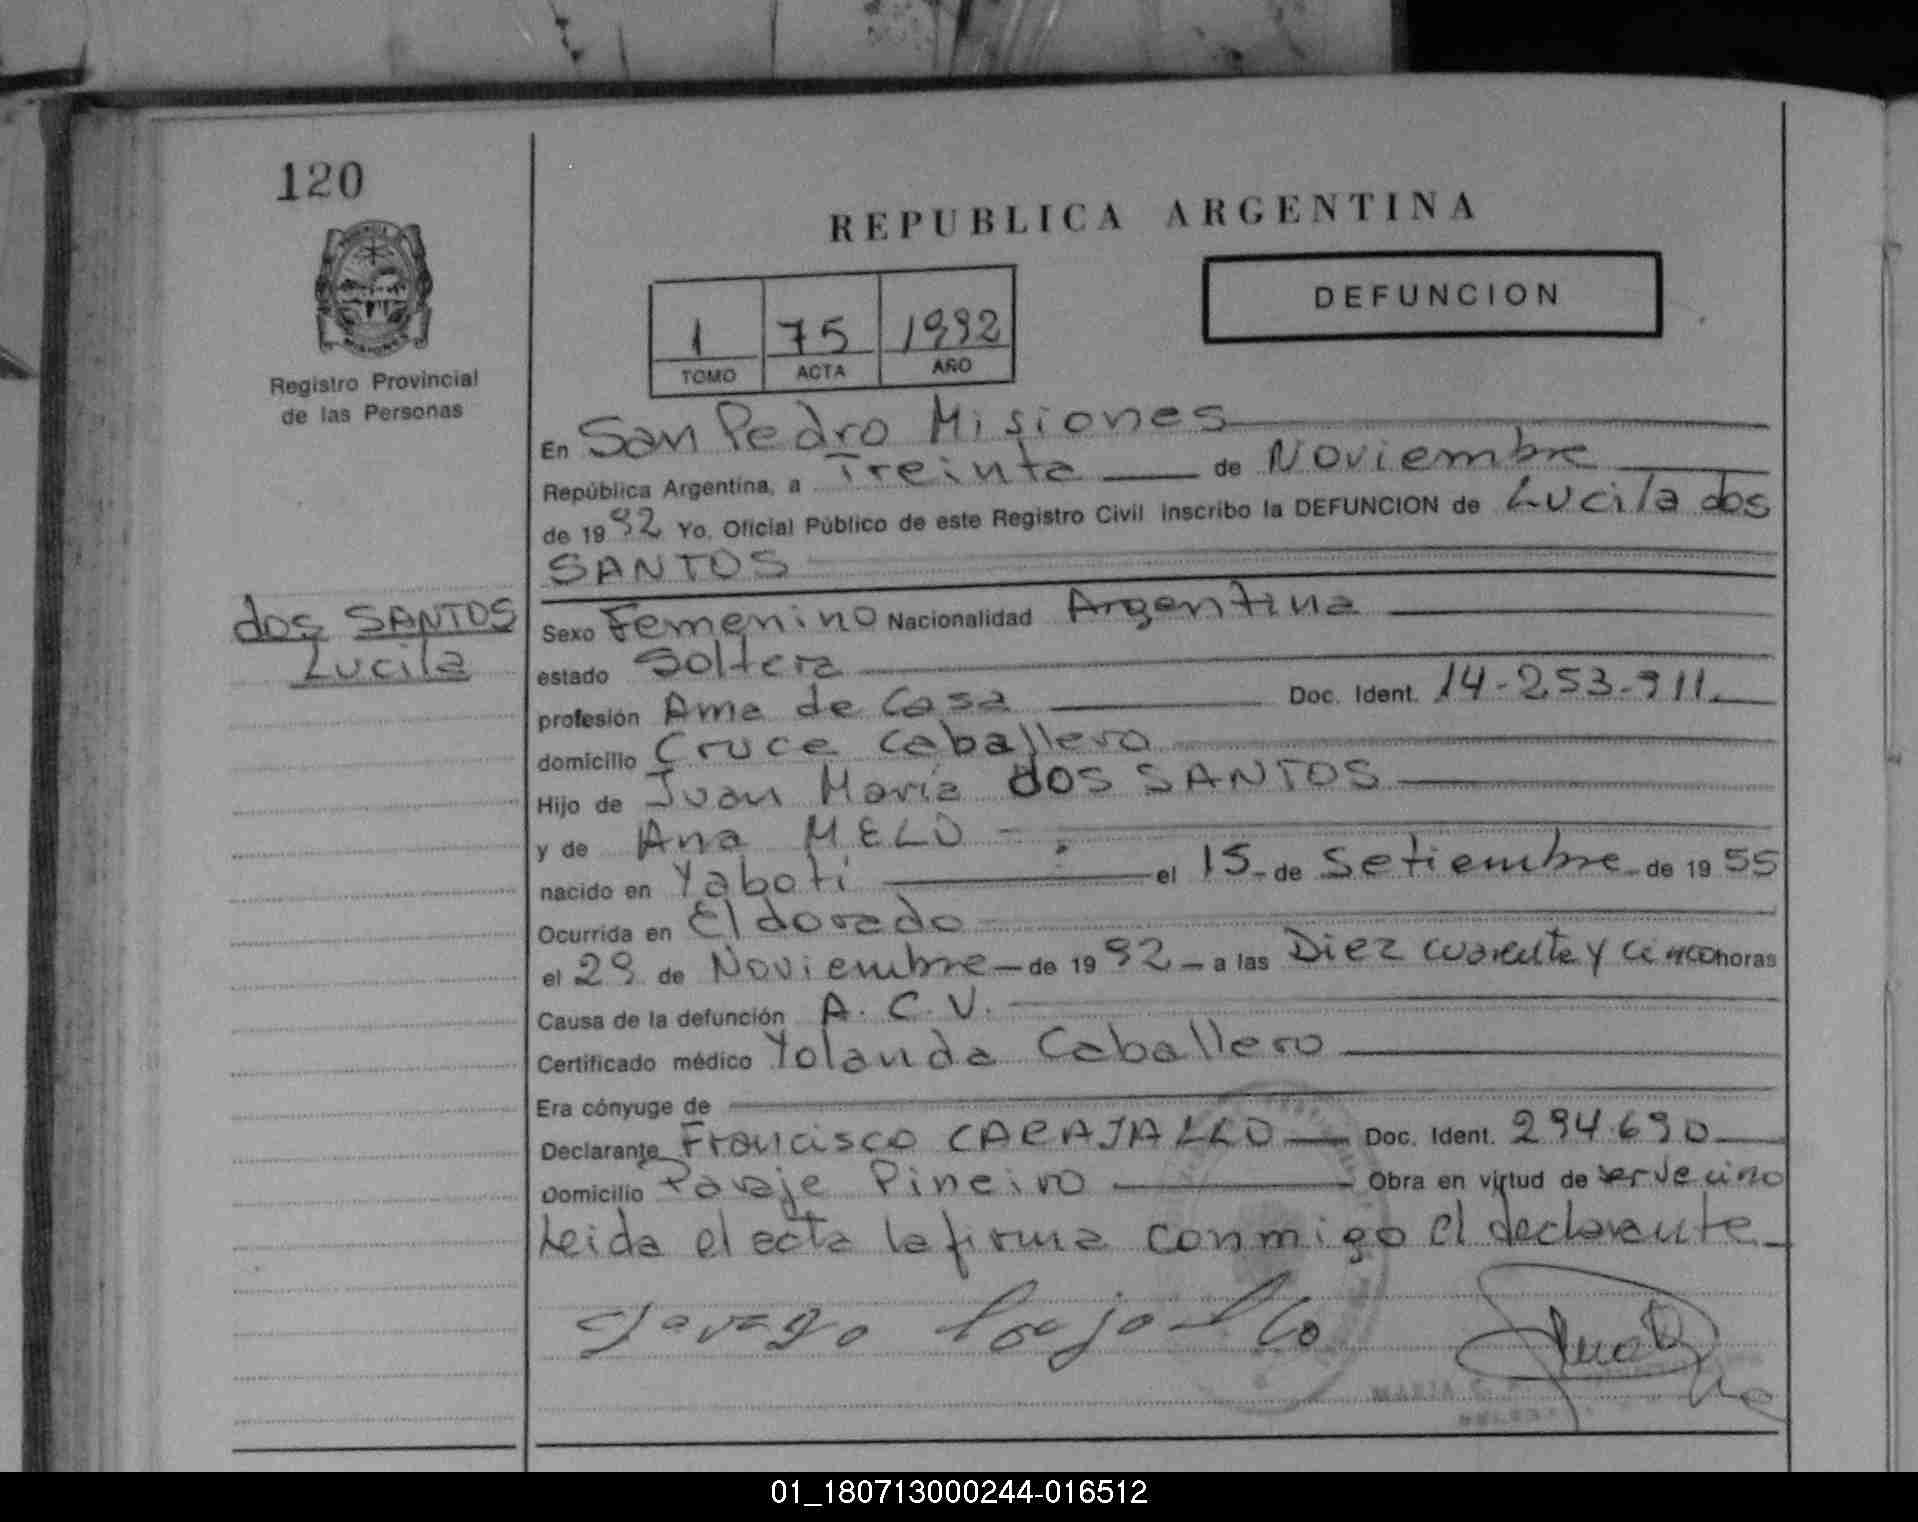 120
REPUBLICA ARGENTINA
DEFUNCION
1 75 1992
TOMO ACTA AÑO
Registro Provincial
de las Personas
En San Pedro Misiones
República Argentina, a Treinta de Noviembre
de 1992 Yo, Oficial Público de este Registro Civil inscribo la DEFUNCION de Lucila dos
SANTOS
dos SANTOS
Lucila
Sexo Femenino Nacionalidad Argentina
estado Soltera
profesión Ama de Casa Doc. Ident. 14-253-911.
domicilio Cruce Caballero
Hijo de Juan María dos SANTOS
y de Ana MELO
nacido en Yaboti el 15 de Setiembre de 1955
Ocurrida en Eldorado
el 29 de Noviembre de 1992 a las Diez cuarenta y cinco horas
Causa de la defunción A. C. V.
Certificado médico Yolanda Caballero
Era cónyuge de
Declarante Francisco CARAJALLO Doc. Ident. 294.690
Domicilio Paraje Pineiro Obra en virtud de ser vecino
Leida el acta la firma conmigo el declarante
01_180713000244-016512